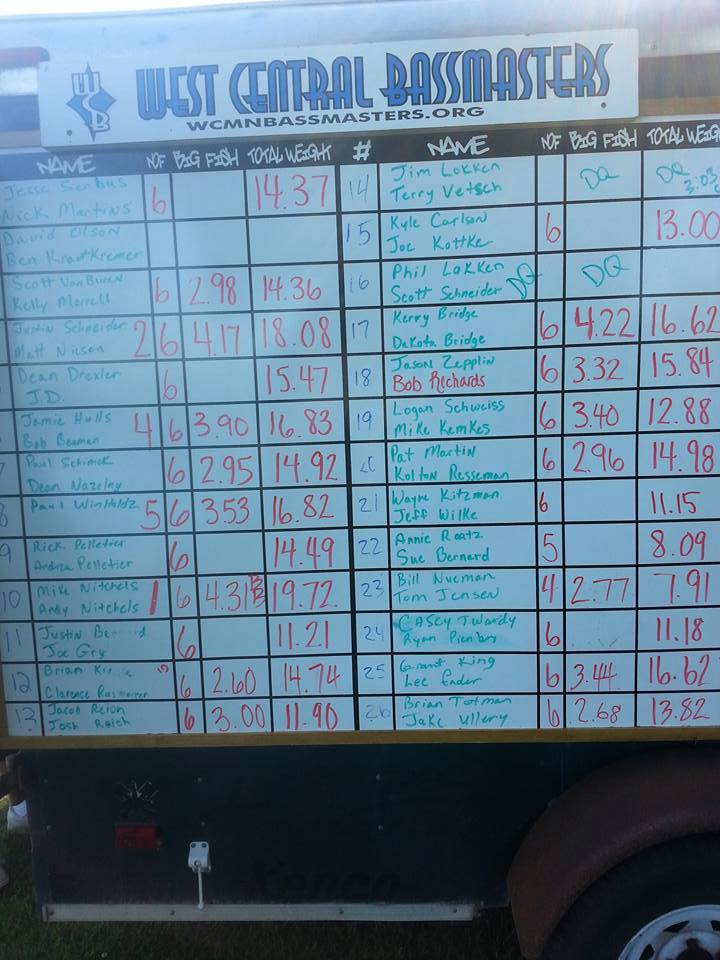 WCB
WEST CENTRAL BASSMASTERS
WCMNBASSMASTERS.ORG
NAME NOF BIG FISH TOTAL WEIGHT # NAME NOF BIG FISH TOTAL WEIGHT
Jesse
Nick Martins
6 14.37
14 Jim Lokken
Terry Vetsch
DQ DQ
3:03
David Olson
Ben Krautkremer
15 Kyle Carlson
Joe Kottke
6 13.00
Scott VanBuren
Kelly Morrell
6 2.98 14.36
16 Phil Lokken
Scott Schneider
DQ DQ
Justin Schneider
Matt Nilsen
2 6 4.17 18.08
17 Kerry Bridge
Dekota Bridge
6 4.22 16.62
Dean Drexler
J.D.
6 15.47
18 Jason Zepplin
Bob Richards
6 3.32 15.84
Jamie Halls
Bob Beaman
4 6 3.90 16.83
19 Logan Schweiss
Mike Kemkes
6 3.40 12.88
7 Paul Schimek
Dean Nazelny
6 2.95 14.92
20 Pat Martin
Kolton Resseman
6 2.96 14.98
8 Paul Winholdz
5 6 3.53 16.82
21 Wayne Kitzman
Jeff Wilke
6 11.15
9 Rick Pelletier
Andrea Pelletier
6 14.49
22 Annie Raatz
Sue Bernard
5 8.09
10 Mike Nitchels
Andy Nitchels
1 6 4.31 19.72
23 Bill Nueman
Tom Jensen
4 2.77 7.91
11 Justin
Joe Gry
6 11.21
24 Casey Twardy
Ryan
6 11.18
12 Brian
Clarence
6 2.60 14.74
25 Grant King
Lee Ender
6 3.44 16.62
13 Jacob
Josh Reich
6 3.00 11.90
26 Brian Totman
Jake Ullery
6 2.68 13.82
Kenco